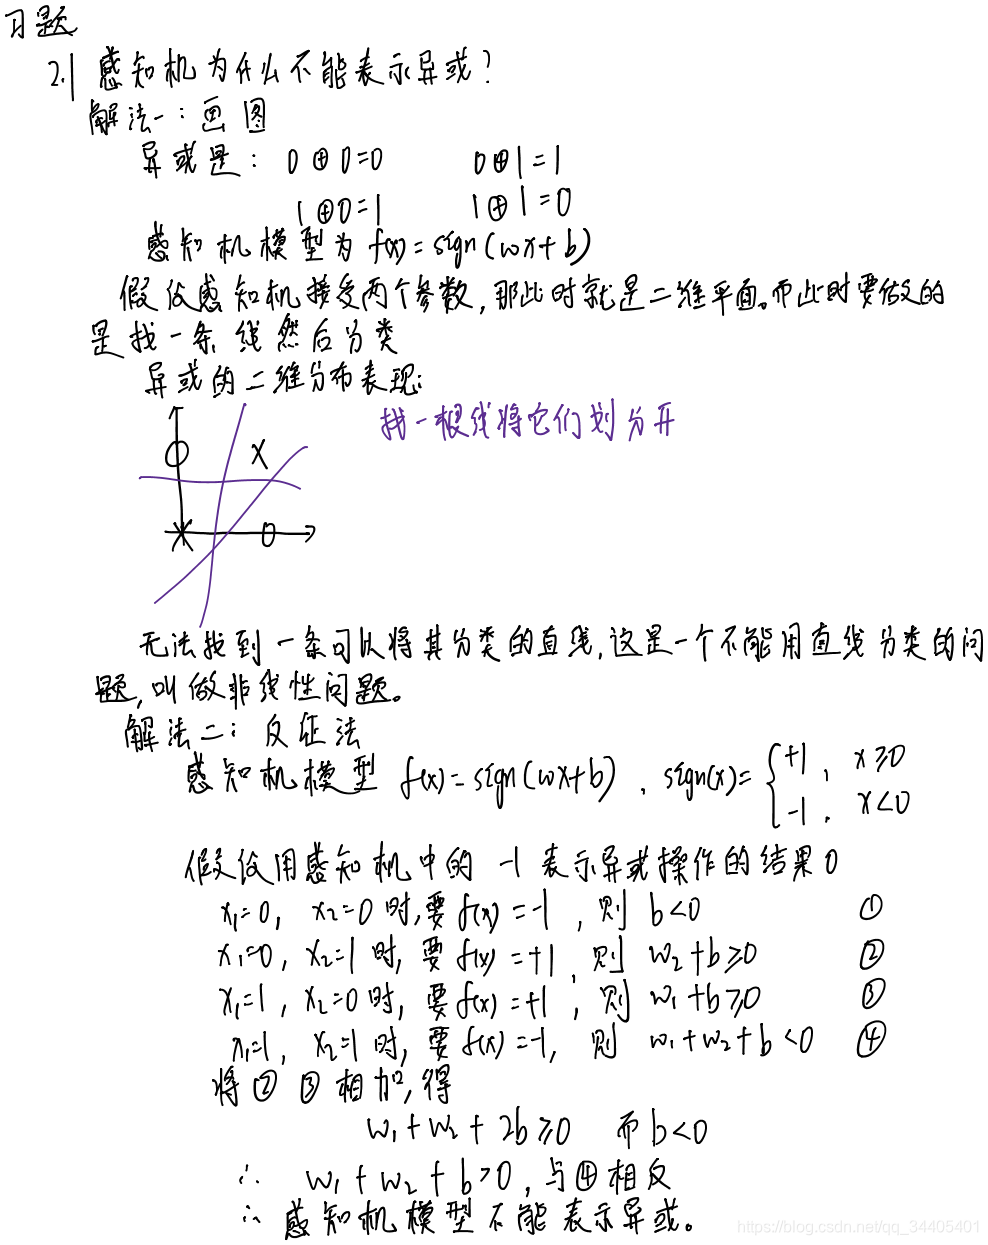 习题
2.1 感知机为什么不能表示异或?
解法一:画图
异或是: 0⊕0=0 0⊕1=1
1⊕0=1 1⊕1=0
感知机模型为 f(x)=sign(wx+b)
假设感知机接受两个参数,那此时就是二维平面。而此时要做的
是找一条线然后分类
异或的二维分布表现:
找一根线将它们划分开
O X
X O
无法找到一条可以将其分类的直线,这是一个不能用直线分类的问
题,叫做非线性问题。
解法二: 反证法
感知机模型 f(x)=sign(wx+b), sign(x)={+1, x≥0
-1, x<0
假设用感知机中的 -1 表示异或操作的结果0
x₁=0, x₂=0 时,要 f(x)=-1, 则 b<0 ①
x₁=0, x₂=1 时,要 f(x)=+1, 则 w₂+b≥0 ②
x₁=1, x₂=0 时,要 f(x)=+1, 则 w₁+b≥0 ③
x₁=1, x₂=1 时,要 f(x)=-1, 则 w₁+w₂+b<0 ④
将②③相加,得
w₁+w₂+2b≥0 而b<0
∴ w₁+w₂+b>0,与④相反
∴ 感知机模型不能表示异或。
https://blog.csdn.net/qq_34405401